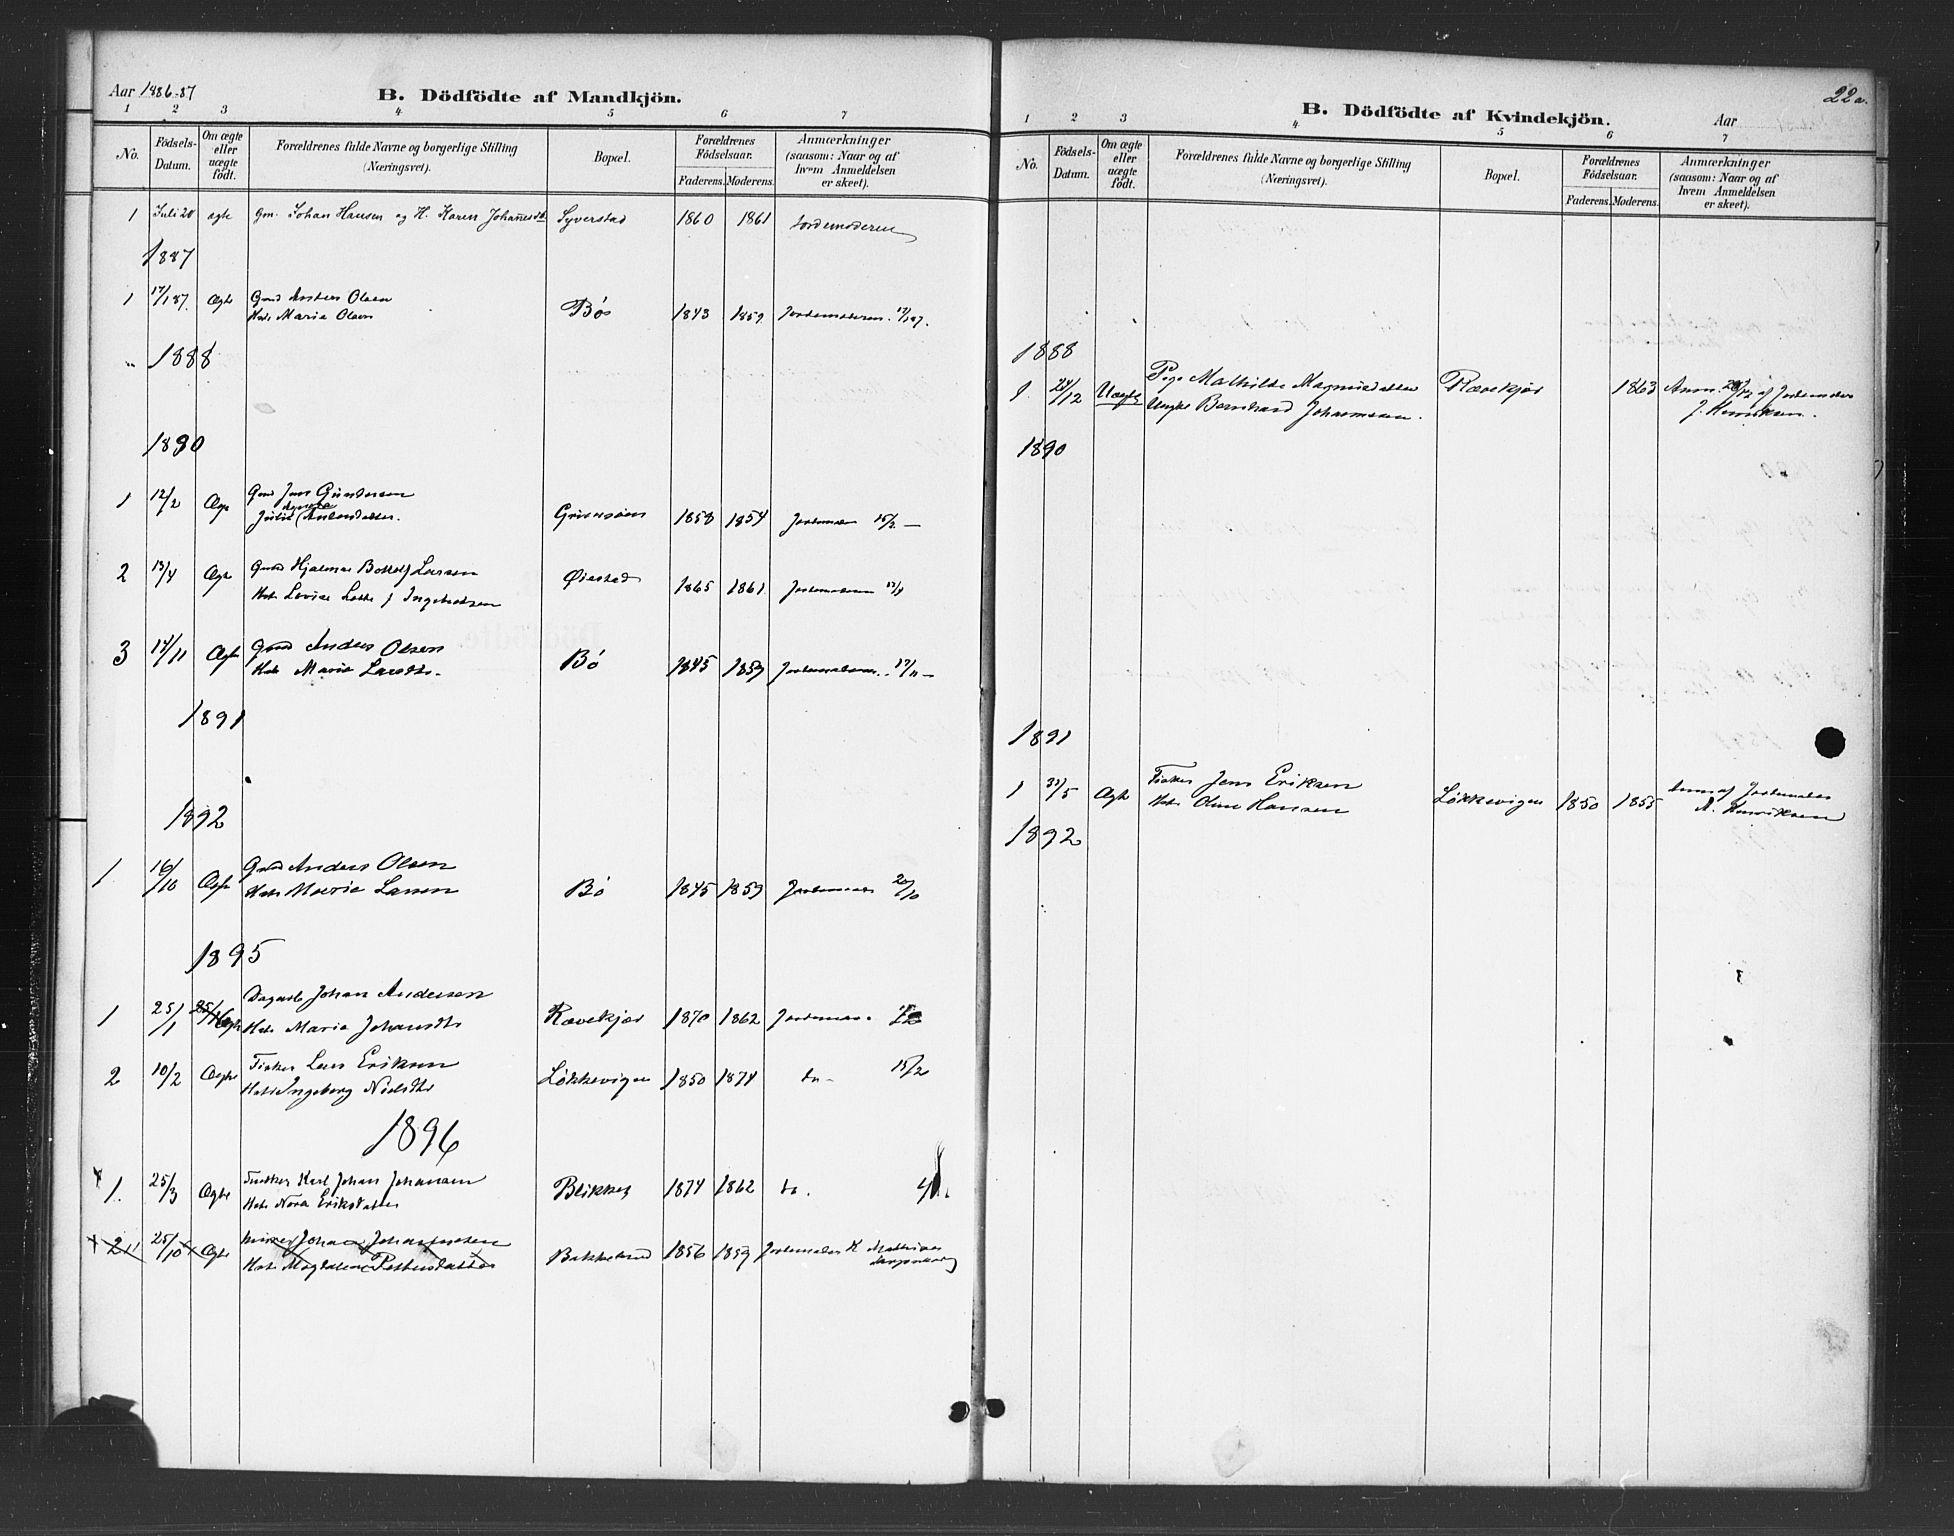 Aar 1886-87
B. Dödfödte af Mandkjön.
1 2 3 4 5 6 7
No.
Födsels-Datum.
Om ægte eller uægte födt.
Forældrenes fulde Navne og borgerlige Stilling (Næringsvei).
Bopæl.
Forældrenes Födselsaar.
Faderens. Moderens.
Anmærkninger (saasom: Naar og af hvem Anmeldelsen er skeet).
1 Juli 20 ægte Gm. Johan Hansen og H. Karen Johannesdt Syverstad 1860 1861 Jordemoderen
1887
1 17/1 87. Ægte Gmd Anders Olsen
Hst. Marie Olsen Bø 1843 1859 Jordemoderen 17/1 87.
1888
1890
1 12/2 Ægte Gmd Jens Gundersen
Julie Andersdatter. 1858 1854 Jordemoder 15/2 —
2 13/4 Ægte Gmd Hjalmar Larsen
Hst. Lovise Lotte f Ingebretsen Øiestad 1865 1861 Jordemoderen 17/4
3 14/11 Ægte Gmd Anders Olsen
Hst. Marie Larsdtr. Bø 1845 1859 Jordemoderen 17/11 —
1891
1892
1. 16/10 Ægte Gmd Anders Olsen
Hst. Marie Larsen Bø 1845 1859 Jordemoder 20/10
1895
1 25/1 Ægte Dagarb. Johan Andersen
Hst. Marie Johansdtr Rævekjær 1870 1862 Jordemor.
2 10/2 Ægte Fisker Lars Eriksen
Hst. Ingeborg Nielsdtr Løkkevigen 1850 1874 do - 15/2
1896
1. 25/3 Ægte Karl Johan Johansen
Hst. Nora Eriksdatter Blikken 1874 1862 do.
2 25/10 Ægte Johan
Hst. Magdalene 1856 1859 Jordemoder K Mathisen
22a.
B. Dödfödte af Kvindekjön.
Aar
1 2 3 4 5 6 7
No.
Födsels-Datum.
Om ægte eller uægte födt.
Forældrenes fulde Navne og borgerlige Stilling (Næringsvei).
Bopæl.
Forældrenes Födselsaar.
Faderens. Moderens.
Anmærkninger (saasom: Naar og af hvem Anmeldelsen er skeet).
1888
1. 24/12 Uægte Pige Mathilde Magnusdatter
Ungkr Bernhard Johannesen. Rævekjær 1863 Anm. af Jordemoder
J. Henriksen.
1890
1891
1 31/5 Ægte Fisker Jens Eriksen
Hst. Oline Hansen Løkkevigen 1850 1855 Anm af Jordemoder
A. Henriksen
1892